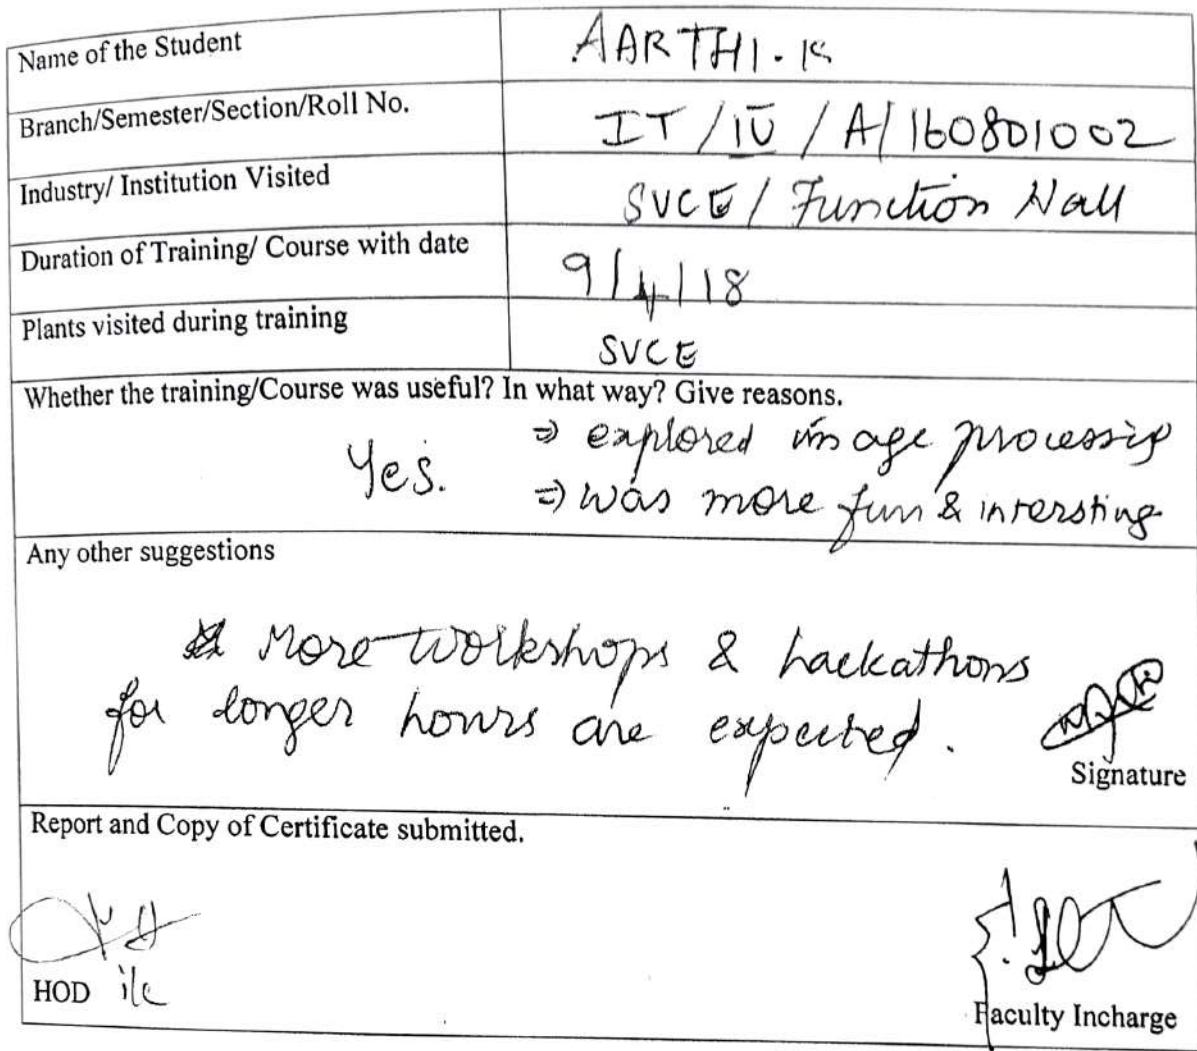 Name of the Student AARTHI.K
Branch/Semester/Section/Roll No. IT/IV/A/160801002
Industry/ Institution Visited SVCE/ Function Hall
Duration of Training/ Course with date 9/4/18
Plants visited during training SVCE
Whether the training/Course was useful? In what way? Give reasons.
Yes. ⇒ explored image processing
⇒ was more fun & intersting
Any other suggestions
More workshops & hackathons
for longer hours are expected.
Signature
Report and Copy of Certificate submitted.
HOD i/c
Faculty Incharge